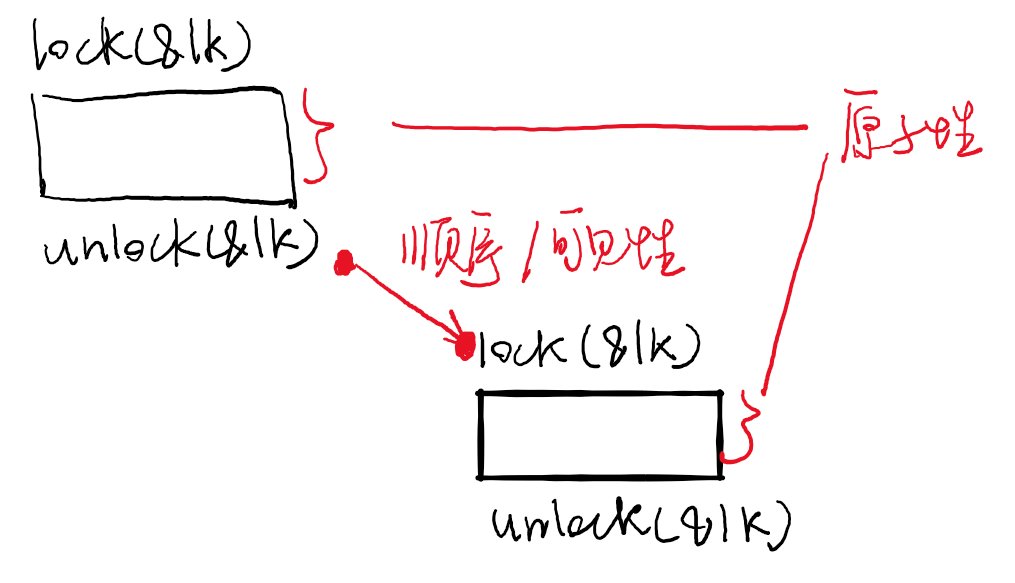 lock(&lk)
原子性
unlock(&lk)
顺序/可见性
lock(&lk)
unlock(&lk)